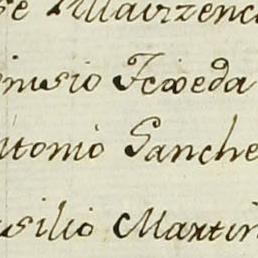 se Villavizenc
onisio Texeda
ntonio Sanche
asilio Martin